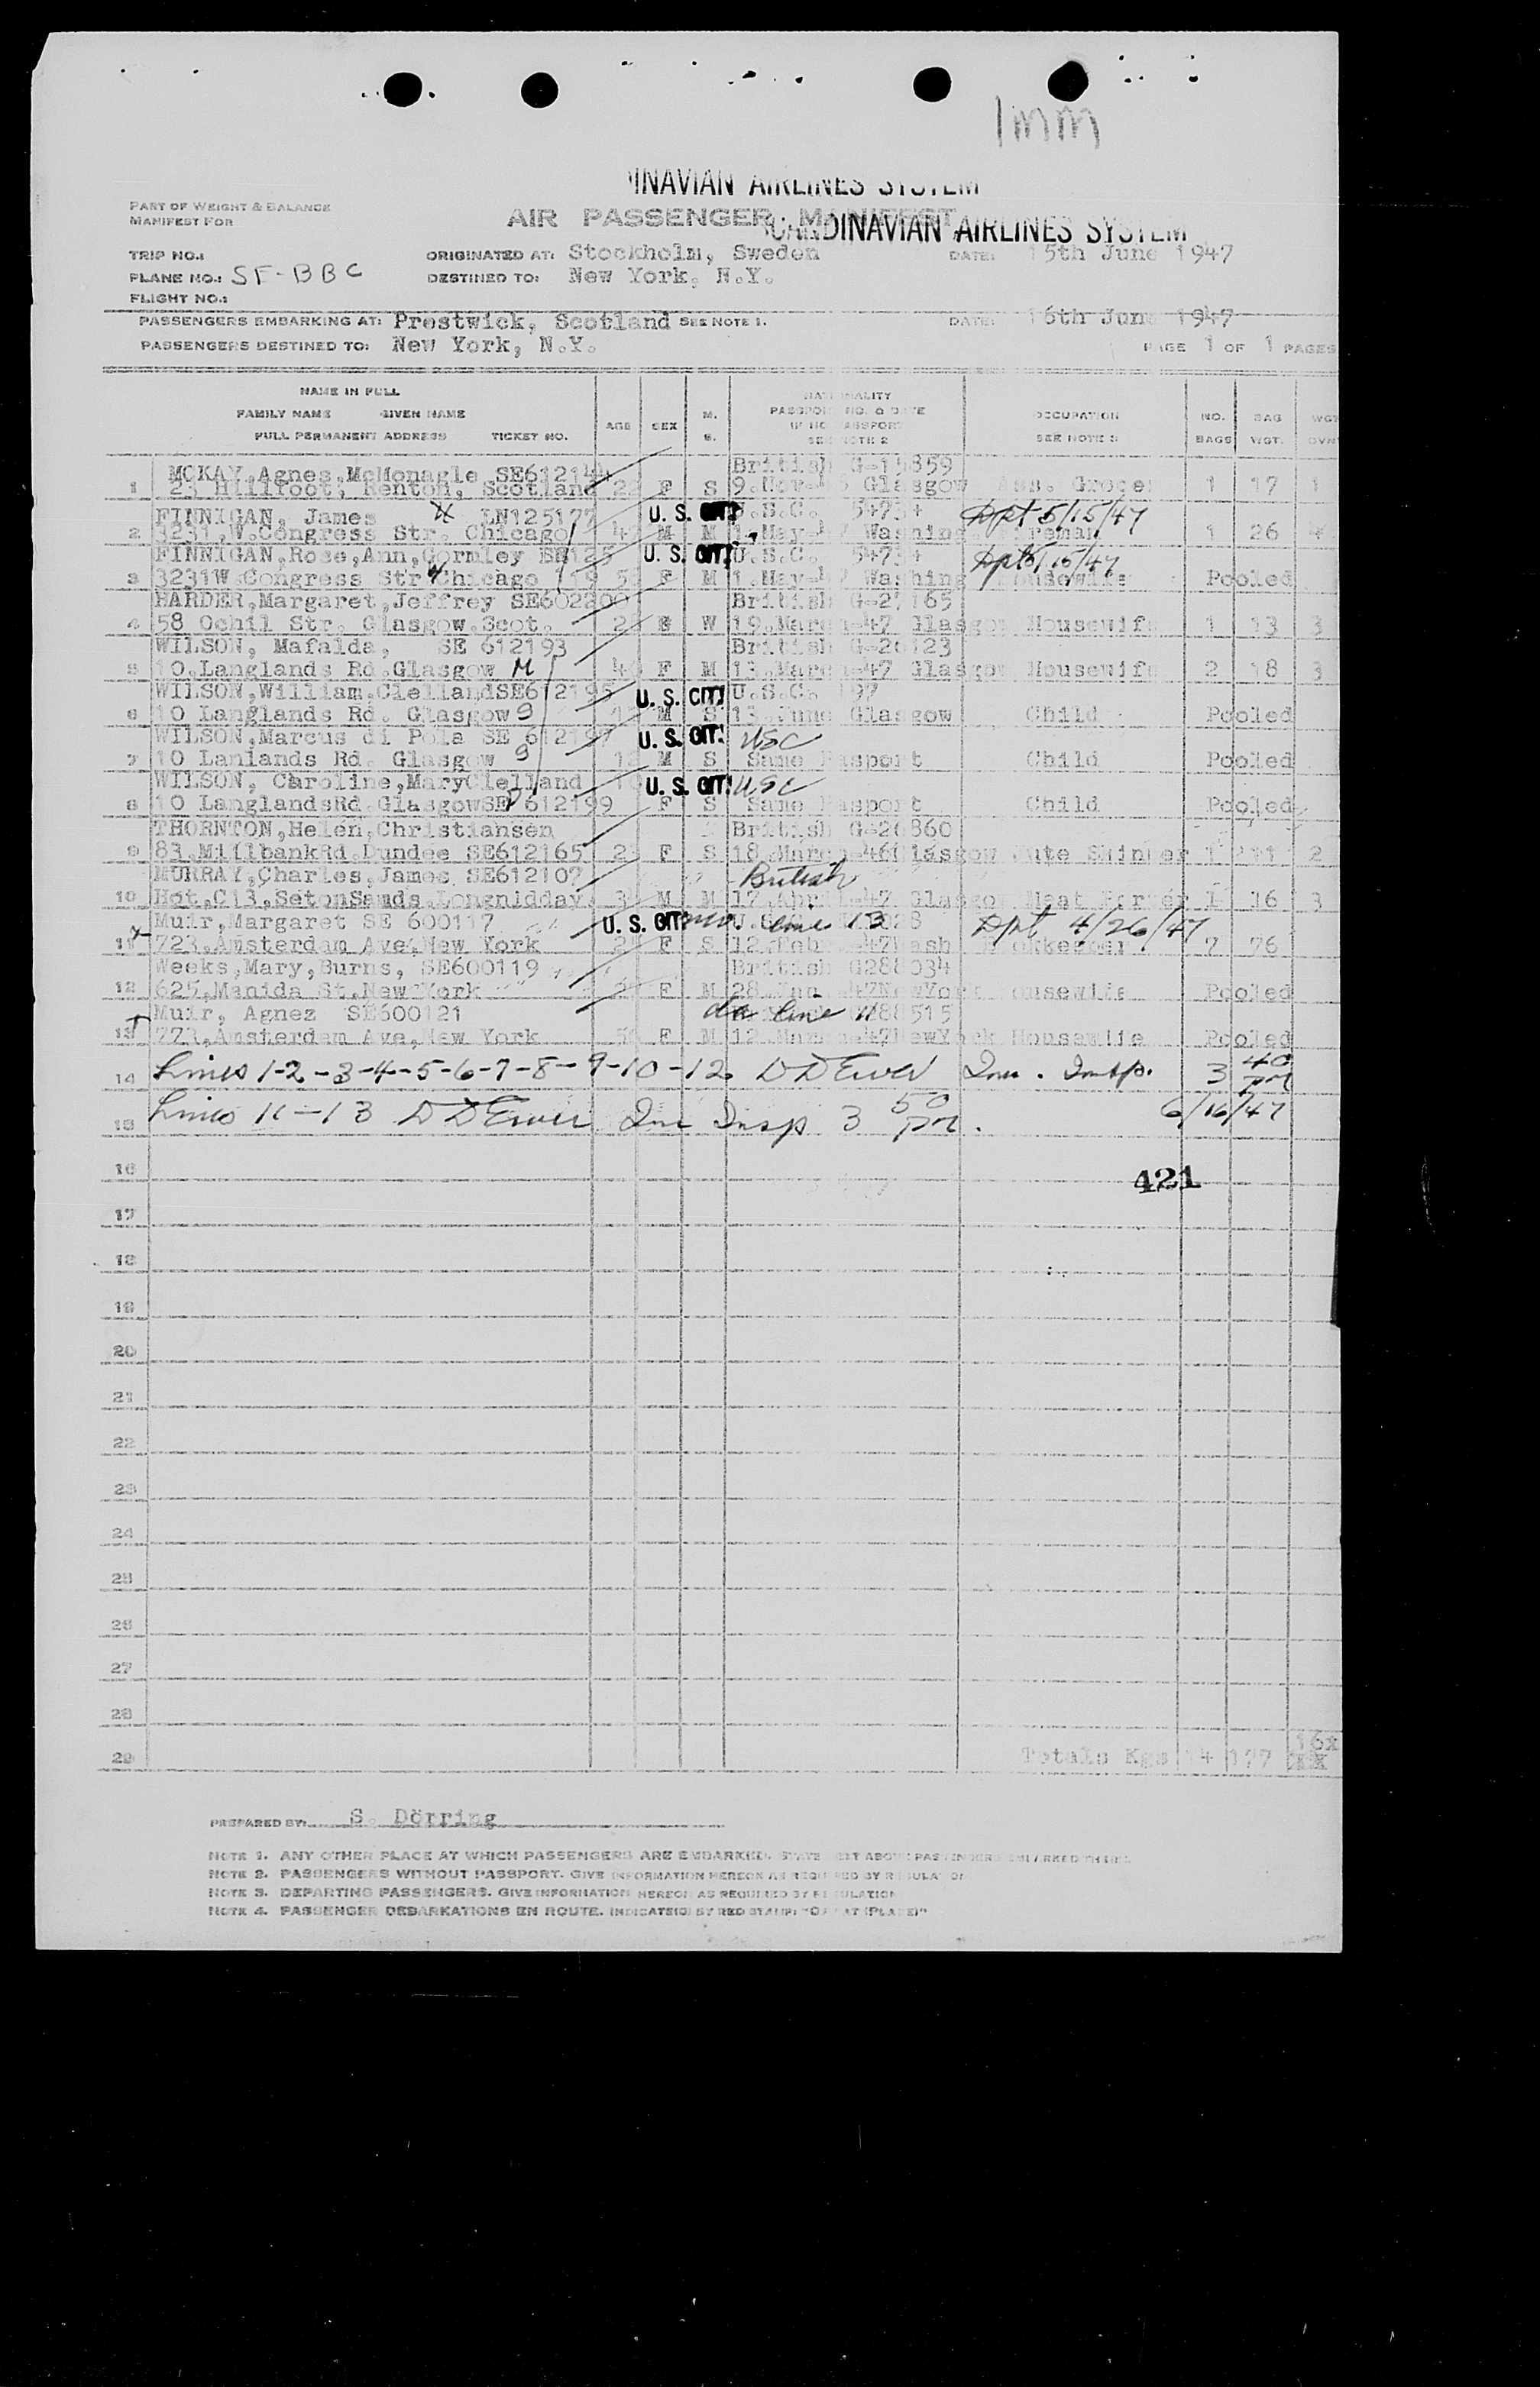 1mm
INAVIAN AIRLINES SYSTEM
AIR PASSENGER MANIFEST
SCANDINAVIAN AIRLINES SYSTEM
PART OF WEIGHT & BALANCE
MANIFEST FOR
TRIP NO.: ORIGINATED AT: Stockholm, Sweden DATE: 15th June 1947
PLANE NO.: SE-BBC DESTINED TO: New York, N.Y.
FLIGHT NO.:
PASSENGERS EMBARKING AT: Prestwick, Scotland SEE NOTE 1. DATE: 16th June 1947
PASSENGERS DESTINED TO: New York, N.Y. PAGE 1 OF 1 PAGES
NAME IN FULL
FAMILY NAME GIVEN NAME
FULL PERMANENT ADDRESS TICKET NO. AGE SEX M. S. NATIONALITY PASSPORT NO. & DATE IF NO PASSPORT SEE NOTE 2 OCCUPATION SEE NOTE 3 NO. BAGS BAG WGT. WGT
MCKAY,Agnes,McMonagle SE612144 British G-15859
1 23 Hillfoot, Renton, Scotland F S 9.Nov Glasgow Ass. Grocer 1 17 1
FINNIGAN, James LN125177 U. S. CIT. U.S.C. 54734 Dpt 5/15/47
2 3231,W.Congress Str. Chicago M M 1.May-47 Washing 1 26 4
FINNIGAN,Rose,Ann,Gormley U. S. CIT. U.S.C. 54734 Dpt 5/15/47
3 3231W.Congress Str Chicago F M 1.May-47 Washing Housewife Pooled
HARDER,Margaret,Jeffrey SE602200 British G-27165
4 58 Ochil Str. Glasgow.Scot. W 19.March-47 Glasgow Housewife 1 13 3
WILSON, Mafalda, SE 612193 British G-26123
5 10.Langlands Rd.Glasgow M F M 13.March-47 Glasgow Housewife 2 18 3
WILSON,William,ClellandSE612195 U. S. CIT. U.S.C. 197
6 10 Langlands Rd. Glasgow 9 M S 13.June Glasgow Child Pooled
WILSON,Marcus di Pola SE 612197 U. S. CIT. USC
7 10 Lanlands Rd. Glasgow 9 M S Same Pasport Child Pooled
WILSON, Caroline,MaryClelland U. S. CIT. USC
8 10 LanglandsRd.GlasgowSE 612199 F S Same Pasport Child Pooled
THORNTON,Helen,Christiansen British G-26860
9 83.MillbankRd.Dundee SE612165 F S 18.March-46Glasgow Jute Spinner 1 11 2
MURRAY,Charles,James SE612107 British
10 Hot,C13,SetonSands,Longnidday. M M 17.April-47 Glasgow 1 16 3
Muir,Margaret SE 600117 U. S. CIT. line 13 Dpt 4/26/47
11 723,Amsterdam Ave,New York F S 12.Febr-47Wash Bookkeeper 7 76
Weeks,Mary,Burns, SE600119 British G288034
12 625,Manida St.New York F M 28.Jan-47NewYork Housewife Pooled
Muir, Agnez SE600121 line 11 288515
13 773,Amsterdam Ave,New York F M 12.March-47NewYork Housewife Pooled
14 Lines 1-2-3-4-5-6-7-8-9-10-12 D D Ewer Imm. Insp. 3 40 pm
15 Lines 11-13 D D Ewer Imm Insp 3 50 pm. 6/16/47
16 421
17
18
19
20
21
22
23
24
25
26
27
28
29 Totals Kgs 14 177 16x
PREPARED BY: S. Dörring
NOTE 1. ANY OTHER PLACE AT WHICH PASSENGERS ARE EMBARKED. STATE NEXT ABOVE PASSENGERS EMBARKED THERE.
NOTE 2. PASSENGERS WITHOUT PASSPORT. GIVE INFORMATION HEREON AS REQUIRED BY REGULATION
NOTE 3. DEPARTING PASSENGERS. GIVE INFORMATION HEREON AS REQUIRED BY REGULATION
NOTE 4. PASSENGER DEBARKATIONS EN ROUTE. INDICATE(D) BY RED STAMP: "OFF AT (PLACE)"